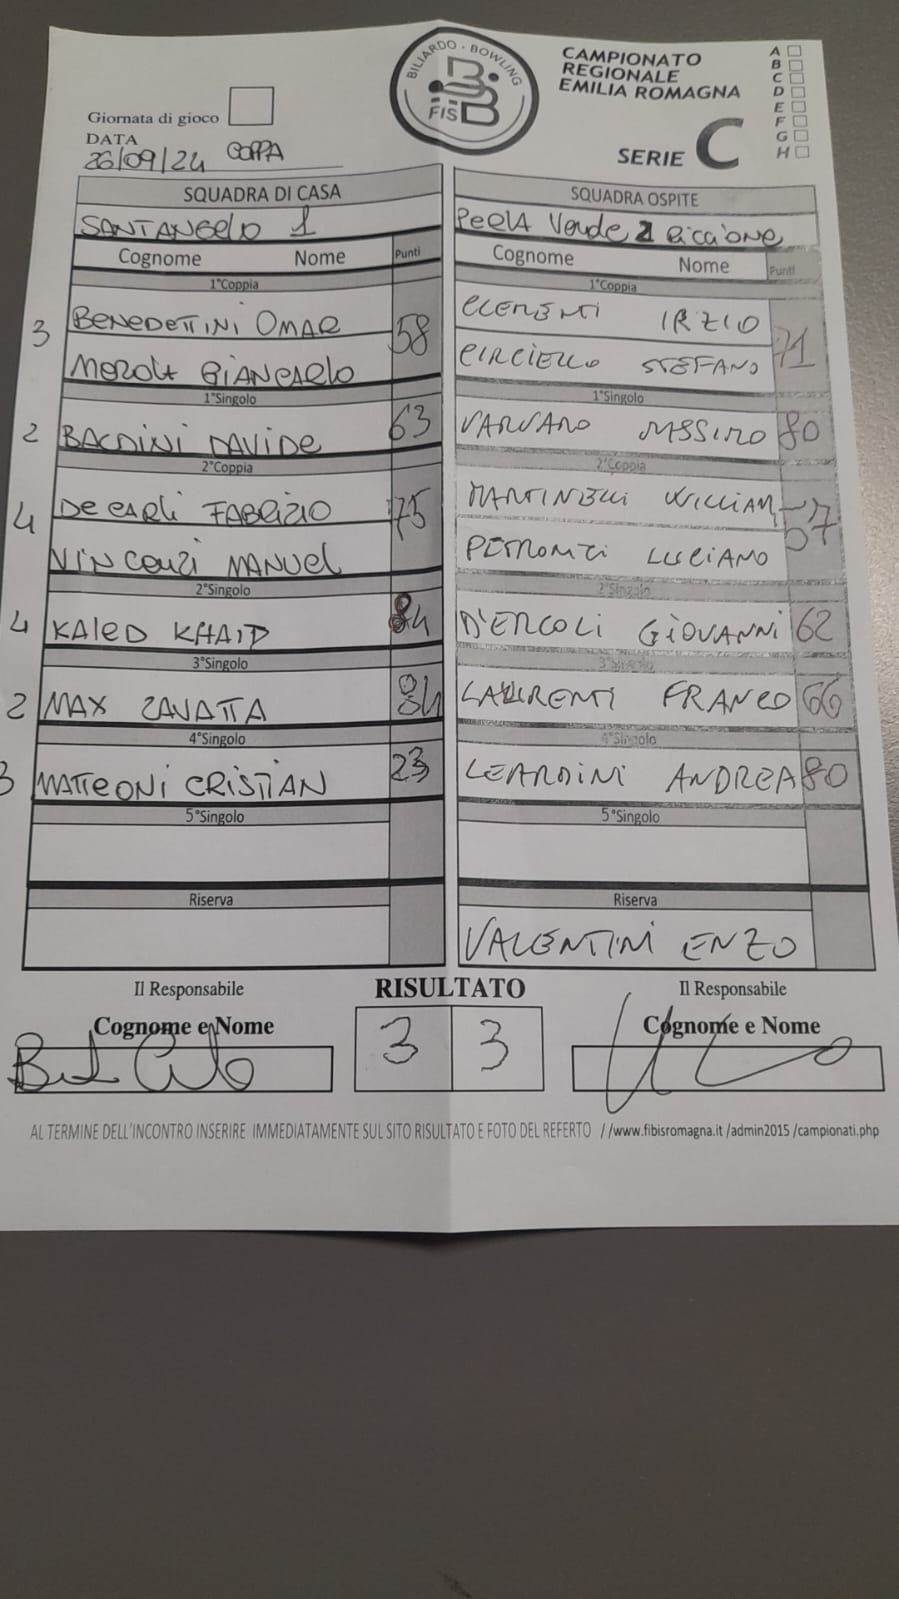 BILIARDO - BOWLING
FISBB
CAMPIONATO
REGIONALE
EMILIA ROMAGNA
SERIE C
A
B
C
D
E
F
G
H
Giornata di gioco
DATA
26/09/24 COPPA
SQUADRA DI CASA
SANTANGELO 1
Cognome Nome Punti
1°Coppia
3 BENEDETTINI OMAR 58
MEROLA GIANCARLO
1°Singolo
2 BALDINI DAVIDE 63
2°Coppia
4 De CARLI FABRIZIO 75
VINCENZI MANUEL
2°Singolo
4 KALED KHAID 84
3°Singolo
2 MAX ZAVATTA 84
4°Singolo
3 MATTEONI CRISTIAN 23
5°Singolo
Riserva
SQUADRA OSPITE
PERLA Verde 2 Riccione
Cognome Nome Punti
1°Coppia
CLEMENTI IRZIO 71
CIRCIELLO STEFANO
1°Singolo
VARVARO MASSIMO 80
2°Coppia
MARTINELLI WILLIAM 57
LUCIANO
2°Singolo
D'ERCOLI GIOVANNI 62
3°Singolo
LAURENTI FRANCO 66
4°Singolo
LEARDINI ANDREA 80
5°Singolo
Riserva
VALENTINI ENZO
Il Responsabile
Cognome e Nome
RISULTATO
3 3
Il Responsabile
Cognome e Nome
AL TERMINE DELL'INCONTRO INSERIRE IMMEDIATAMENTE SUL SITO RISULTATO E FOTO DEL REFERTO //www.fibisromagna.it /admin2015 /campionati.php